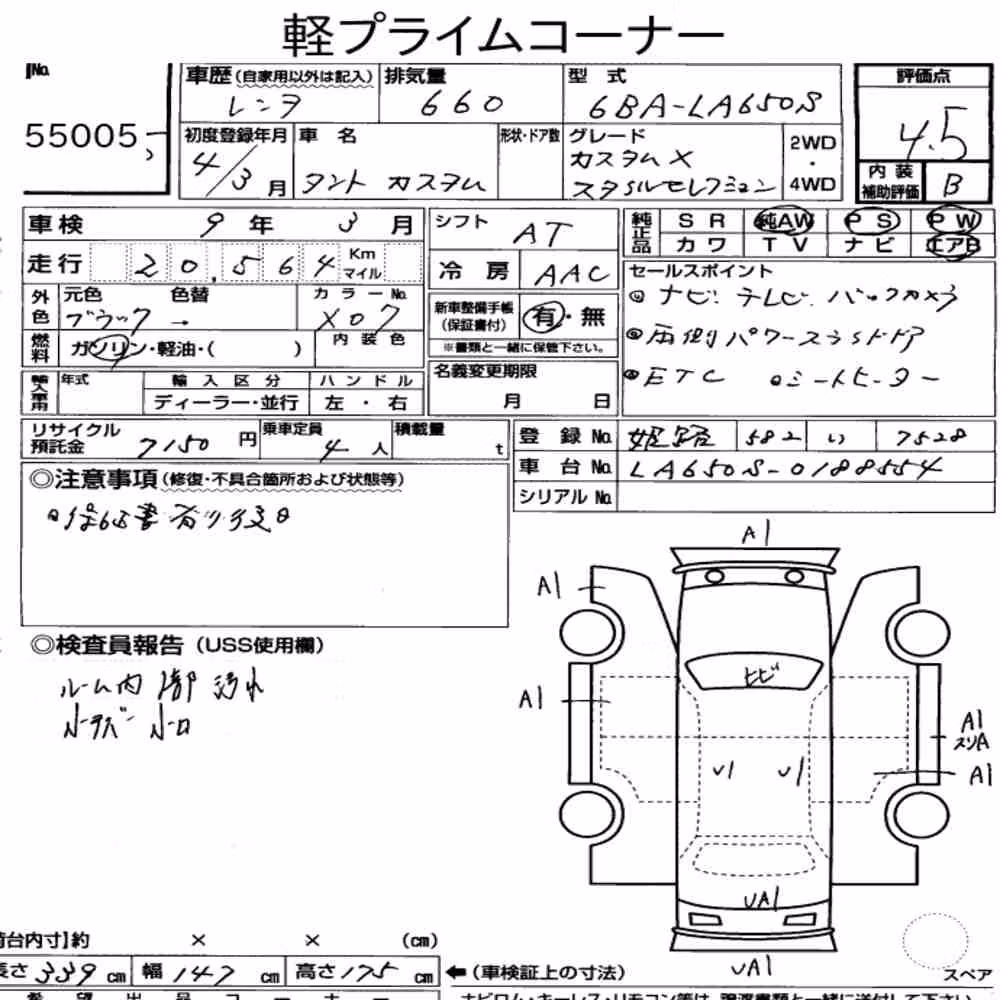 軽プライムコーナー
No.
55005
車歴(自家用以外は記入) 排気量 型式 評価点
レンタ 660 6BA-LA650S 4.5
初度登録年月 車名 形状・ドア数 グレード 2WD・4WD
4/3月 タント カスタム カスタムX スタイルセレクション
内装補助評価 B
車検 9年 3月 シフト AT 純正品 SR 純AW PS PW
カワ TV ナビ エアB
走行 20,564 Km マイル 冷房 AAC セールスポイント
外色 元色 色替 カラーNo. 新車整備手帳(保証書付) 有・無
ブラック → X07 ※書類と一緒に保管下さい。
ナビ テレビ バックカメラ
両側パワースライドドア
ETC シートヒーター
燃料 ガソリン・軽油・( ) 内装色
輸入車用 年式 輸入区分 ハンドル 名義変更期限
ディーラー・並行 左・右 月 日
リサイクル預託金 7150円 乗車定員 4人 積載量 t
登録No. 姫路 582 い 7528
車台No. LA650S-0188554
シリアルNo.
◎注意事項(修復・不具合箇所および状態等)
保証書有り後日
◎検査員報告(USS使用欄)
ルーム内 汚れ
A1
A1
ヒビ
A1
A1
スリA
U1 U1 A1
UA1
UA1
荷台内寸】約 × × (cm)
長さ339cm 幅147cm 高さ175cm ←(車検証上の寸法) スペア
希望出品コーナー